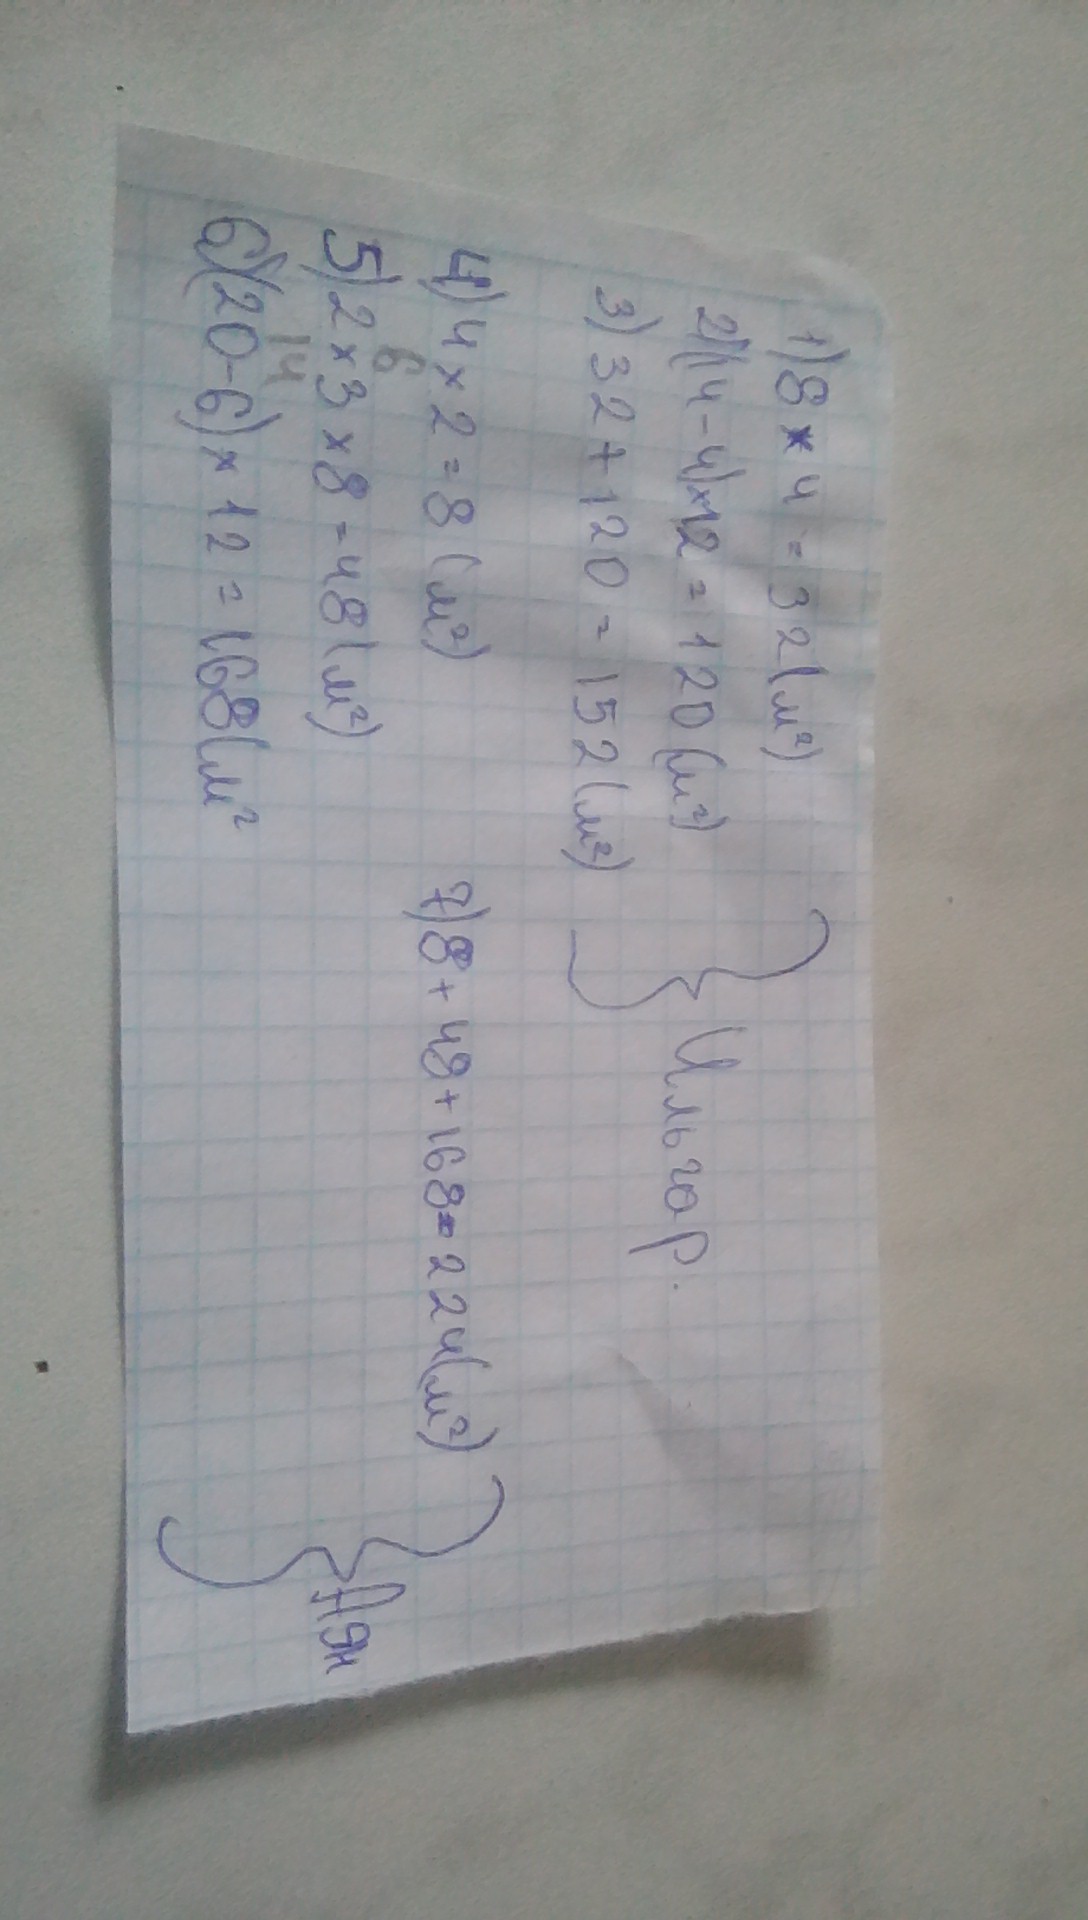 1) 8 × 4 = 32 (м²)
2) (14 - 4) × 12 = 120 (м²)
3) 32 + 120 = 152 (м²)
Ильгар.
4) 4 × 2 = 8 (м²)
6
5) 2 × 3 × 8 = 48 (м²)
14
6) (20 - 6) × 12 = 168 (м²
7) 8 + 48 + 168 = 224 (м²)
Аян